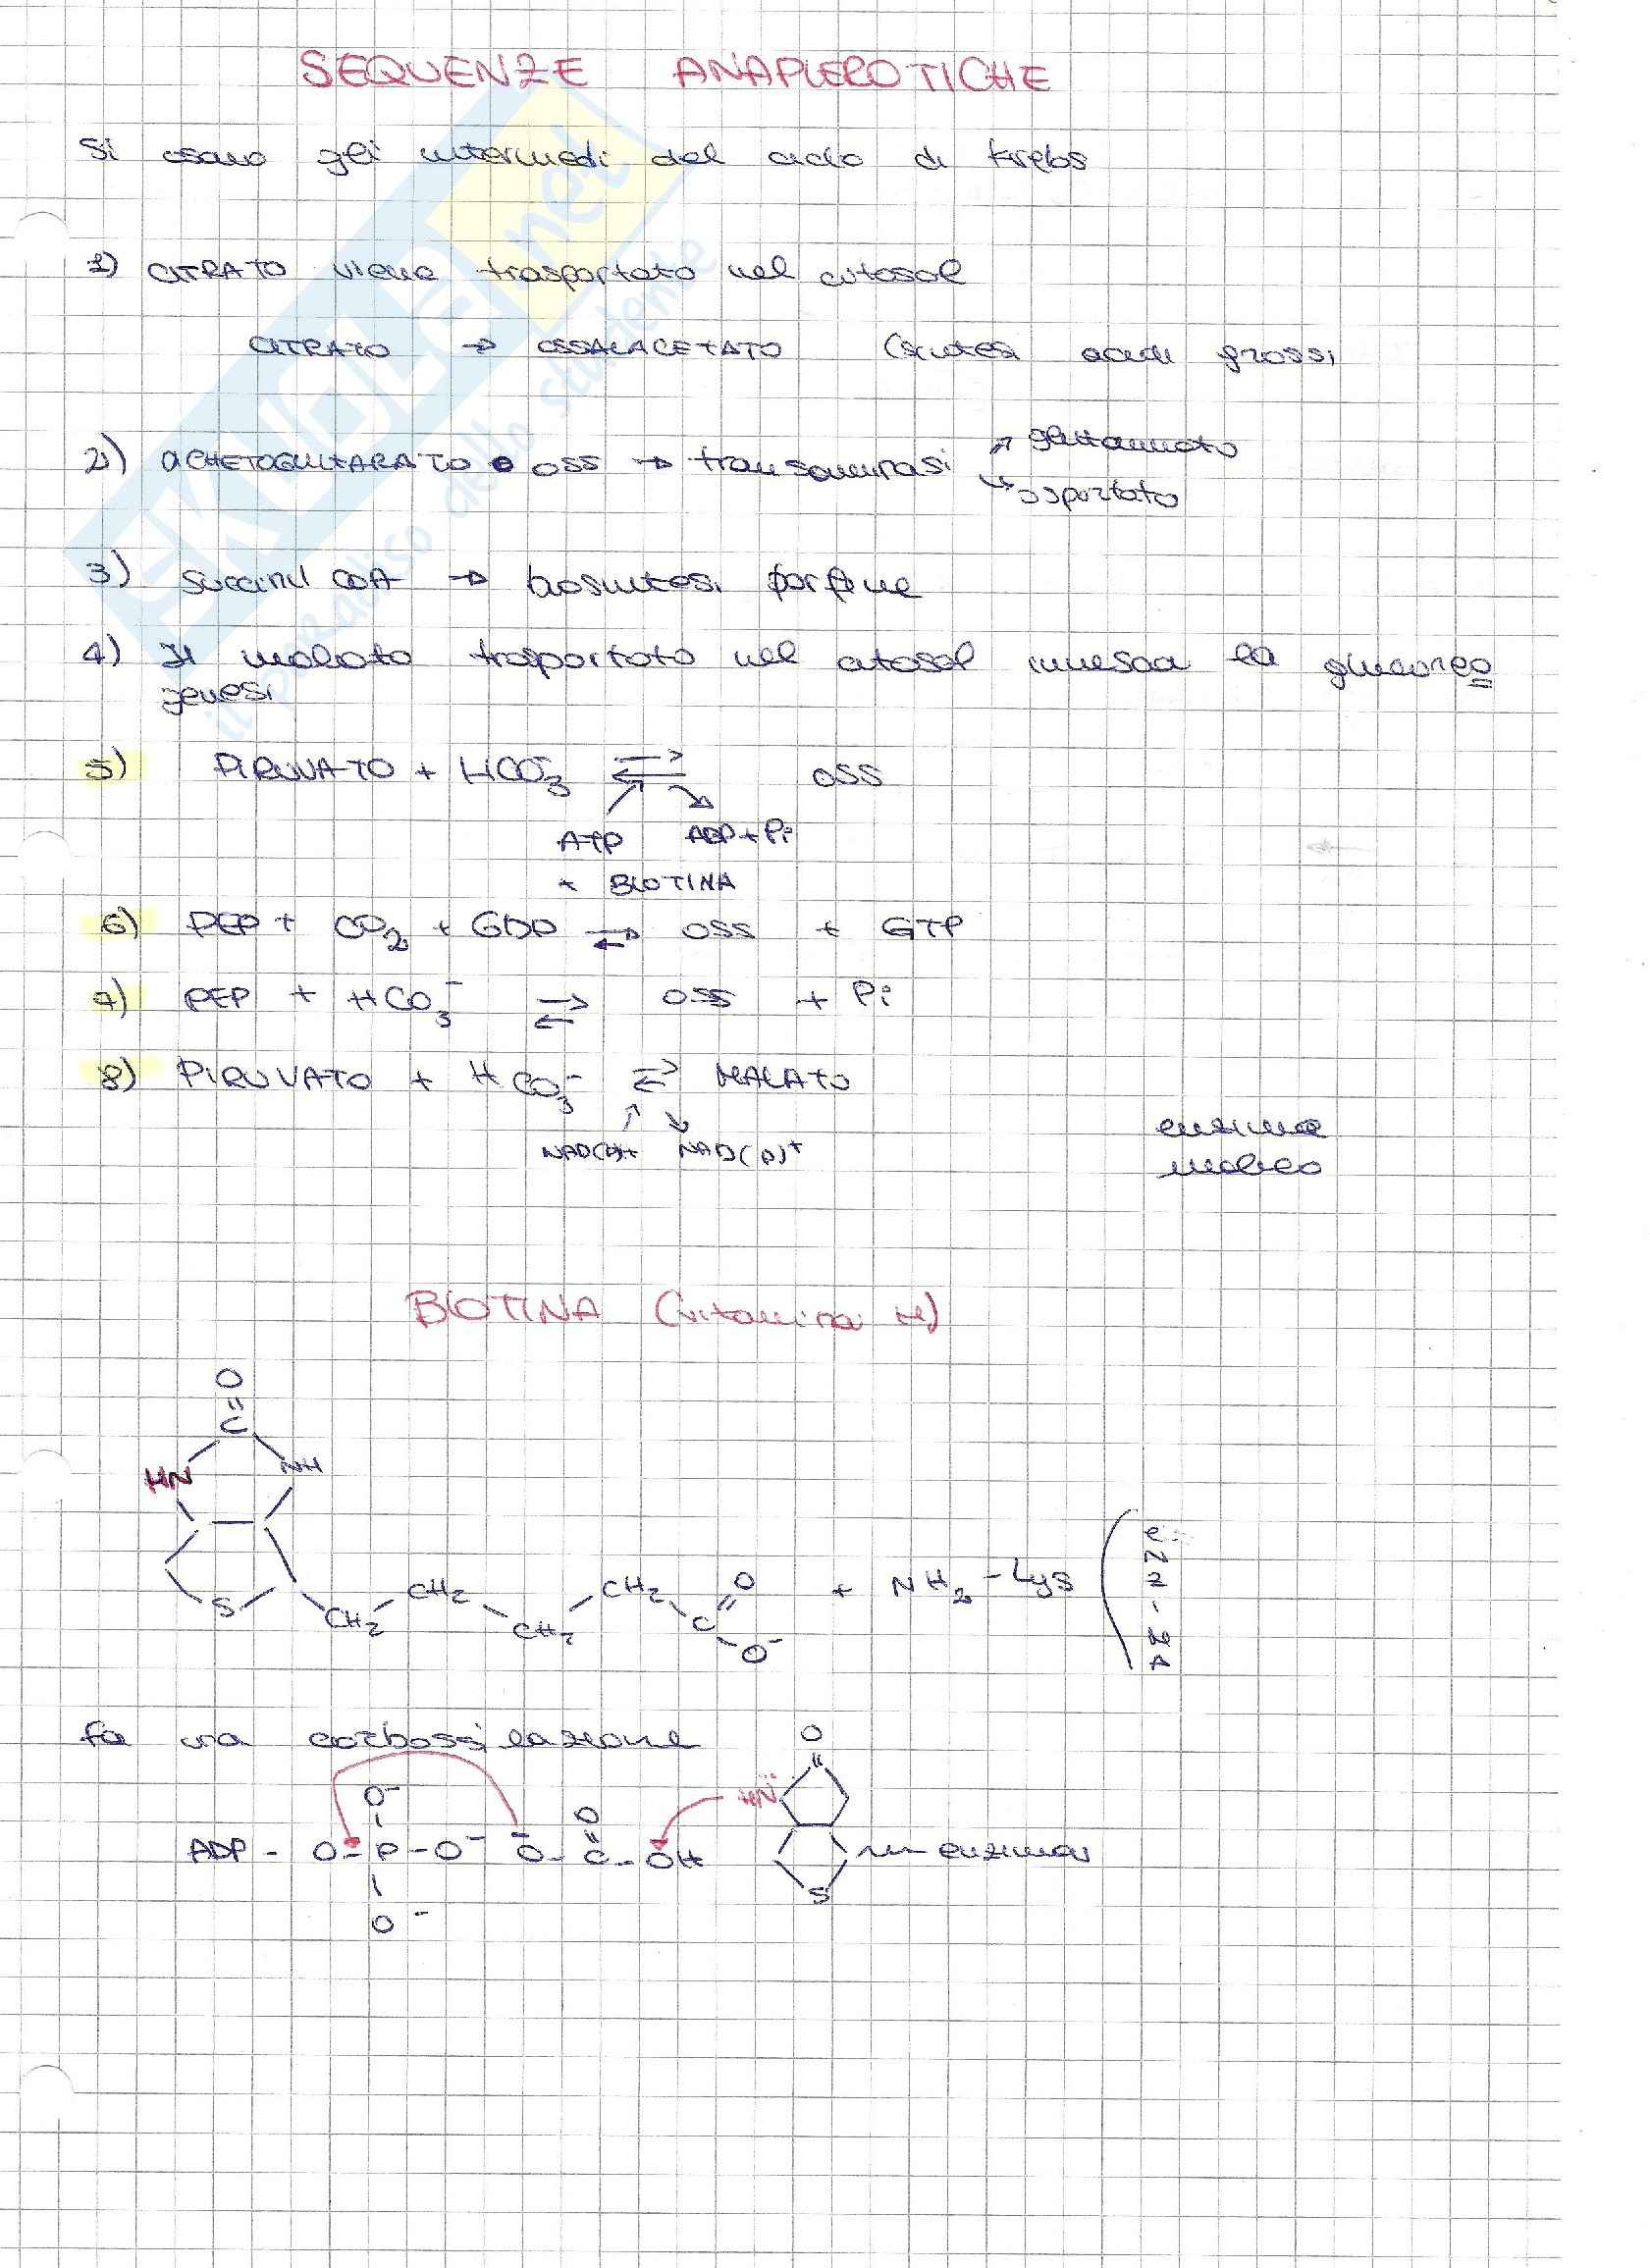 SEQUENZE ANAPLEROTICHE
Si usano gli intermedi del ciclo di Krebs
1) CITRATO viene trasportato nel citosol
CITRATO → OSSALACETATO (sintesi acidi grassi
2) αCHETOGLUTARATO e OSS → transaminasi ↗ glutammato
↘ aspartato
3) Succinil COA → biosintesi porfine
4) Il malato trasportato nel citosol innesca la gluconeo
genesi
5) PIRUVATO + HCO3- ⇌ OSS
ATP ADP + Pi
+ BIOTINA
6) PEP + CO2 + GDP ⇌ OSS + GTP
7) PEP + HCO3- ⇌ OSS + Pi
8) PIRUVATO + HCO3- ⇌ MALATO
NAD(P)H NAD(P)+
enzima
malico
BIOTINA (vitamina H)
O
C
HN NH
S CH2 CH2 CH2 CH2 C O O- + NH2-Lys
ENZ-MA
fa una carbossilazione
O
O- O HN
ADP - O - P - O- -O - C - OH enzima
S
O-
SKUOLA.net
il paradiso dello studente